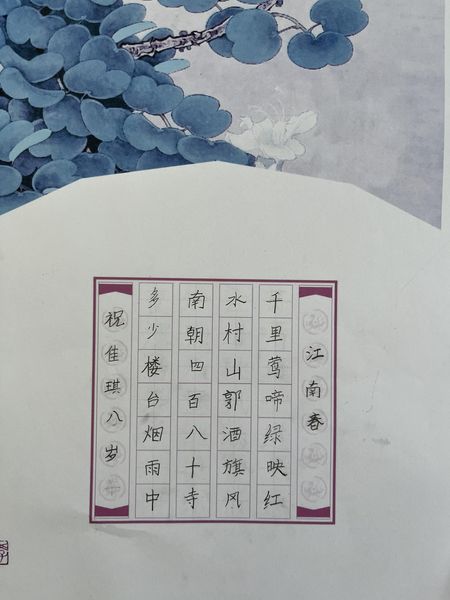 江南春
千里莺啼绿映红
水村山郭酒旗风
南朝四百八十寺
多少楼台烟雨中
祝佳琪八岁